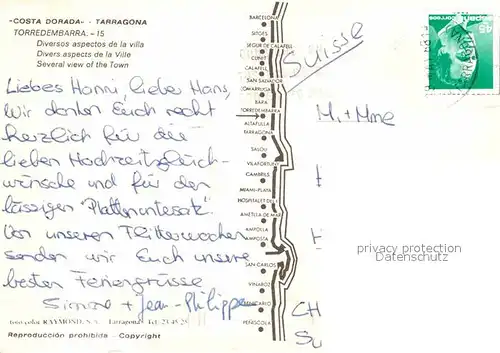 "COSTA DORADA" - TARRAGONA
TORREDEMBARRA. - 15
Diversos aspectos de la villa
Divers aspects de la Ville
Several view of the Town
Liebes Hanni, lieber Hans,
Wir danken Euch recht
herzlich für die
lieben Hochzeitsglück-
wünsche und für den
lässigen "Plattenuntersatz".
Von unseren Flitterwochen
senden wir Euch unsere
besten Feriengrüsse
Simone + Jean-Philippe
foto color RAYMOND, S.A. Tarragona Tel. 23 45 21
Reproducción prohibida - Copyright
BARCELONA
SITGES
SEGUR DE CALAFELL
CUNIT
CALAFELL
SAN SALVADOR
COMARRUGA
BARA
TORREDEMBARRA
ALTAFULLA
TARRAGONA
SALOU
VILAFORTUNY
CAMBRILS
MIAMI-PLATA
HOSPITALET DEL I.
AMETLLA DE MAR
AMPOLLA
AMPOSTA
SAN CARLOS
VINAROZ
BENICARLO
PEÑISCOLA
Suisse
M. + Mme
CH
Su
45
España correos
privacy protection
Datenschutz